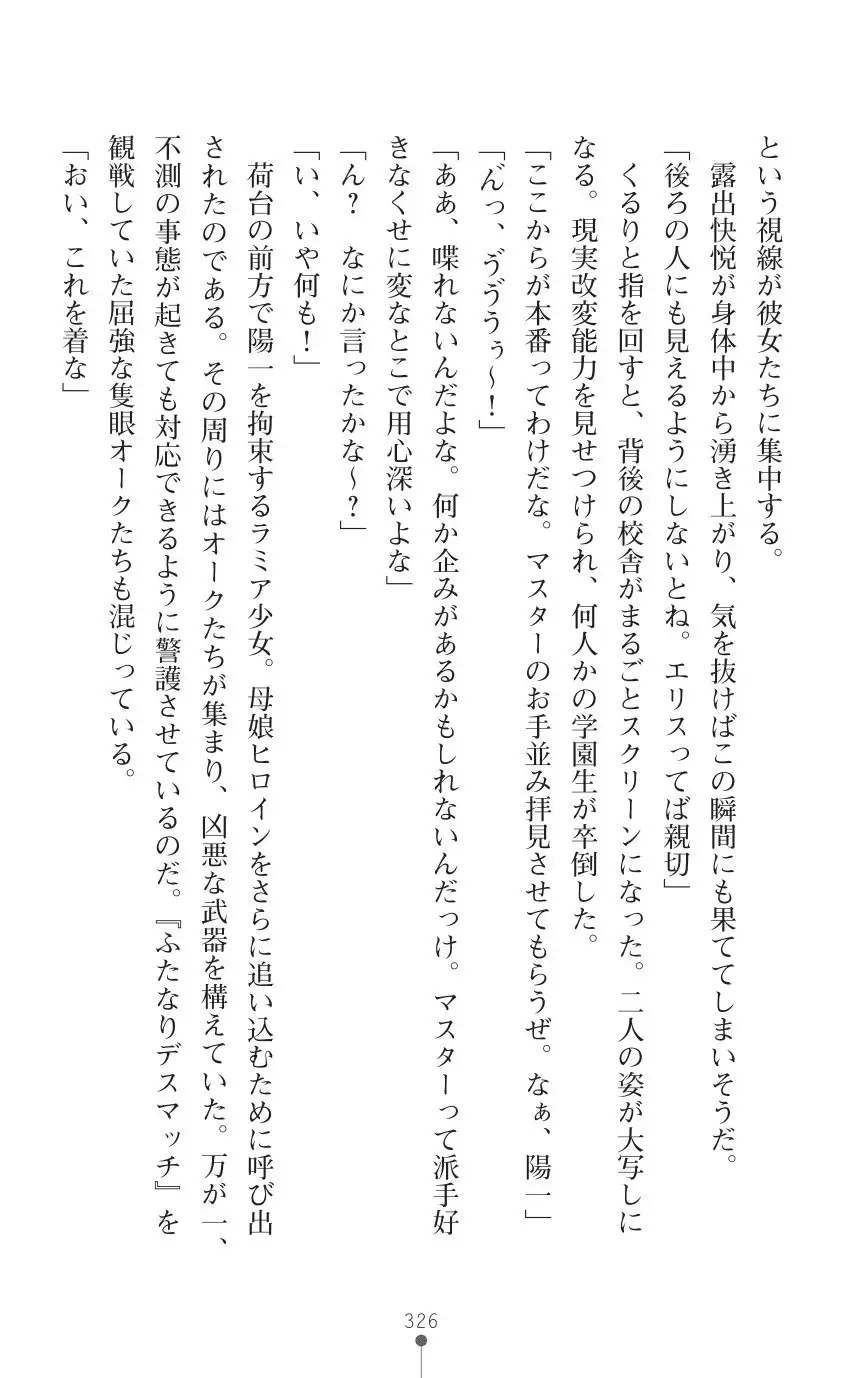 という視線が彼女たちに集中する。
露出快悦が身体中から湧き上がり、気を抜けばこの瞬間にも果ててしまいそうだ。
「後ろの人にも見えるようにしないとね。エリスってば親切」
くるりと指を回すと、背後の校舎がまるごとスクリーンになった。二人の姿が大写しに
なる。現実改変能力を見せつけられ、何人かの学園生が卒倒した。
「ここからが本番ってわけだな。マスターのお手並み拝見させてもらうぜ。なぁ、陽一」
「ん゛っ、ゔゔうぅ～！」
「ああ、喋れないんだよな。何か企みがあるかもしれないんだっけ。マスターって派手好
きなくせに変なとこで用心深いよな」
「ん？　なにか言ったかな～？」
「い、いや何も！」
荷台の前方で陽一を拘束するラミア少女。母娘ヒロインをさらに追い込むために呼び出
されたのである。その周りにはオークたちが集まり、凶悪な武器を構えていた。万が一、
不測の事態が起きても対応できるように警護させているのだ。『ふたなりデスマッチ』を
観戦していた屈強な隻眼オークたちも混じっている。
「おい、これを着な」
326